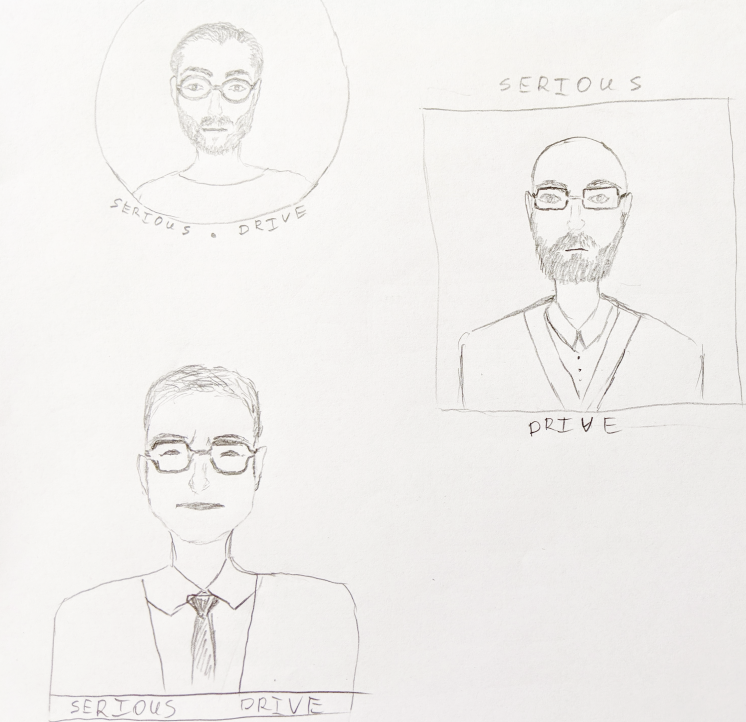 SERIOUS . DRIVE
SERIOUS
DRIVE
SERIOUS DRIVE